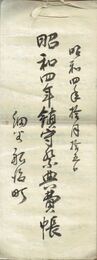 昭和四年拾月拾五日
昭和四年鎮守祭典費帳
細山新臨町